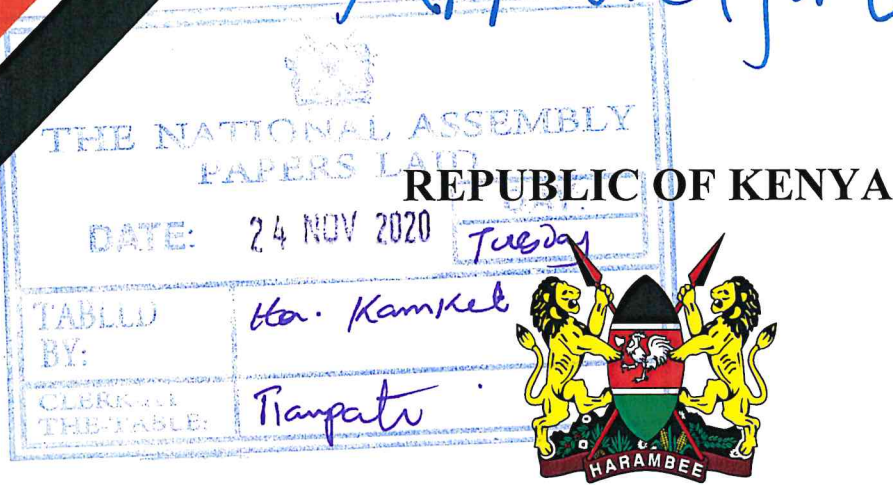 THE NATIONAL ASSEMBLY
PAPERS LAID
REPUBLIC OF KENYA
DAY:
DATE: 24 NOV 2020 Tuesday
TABLED BY: Hon. Kamket
CLERK-AT THE-TABLE:
HARAMBEE